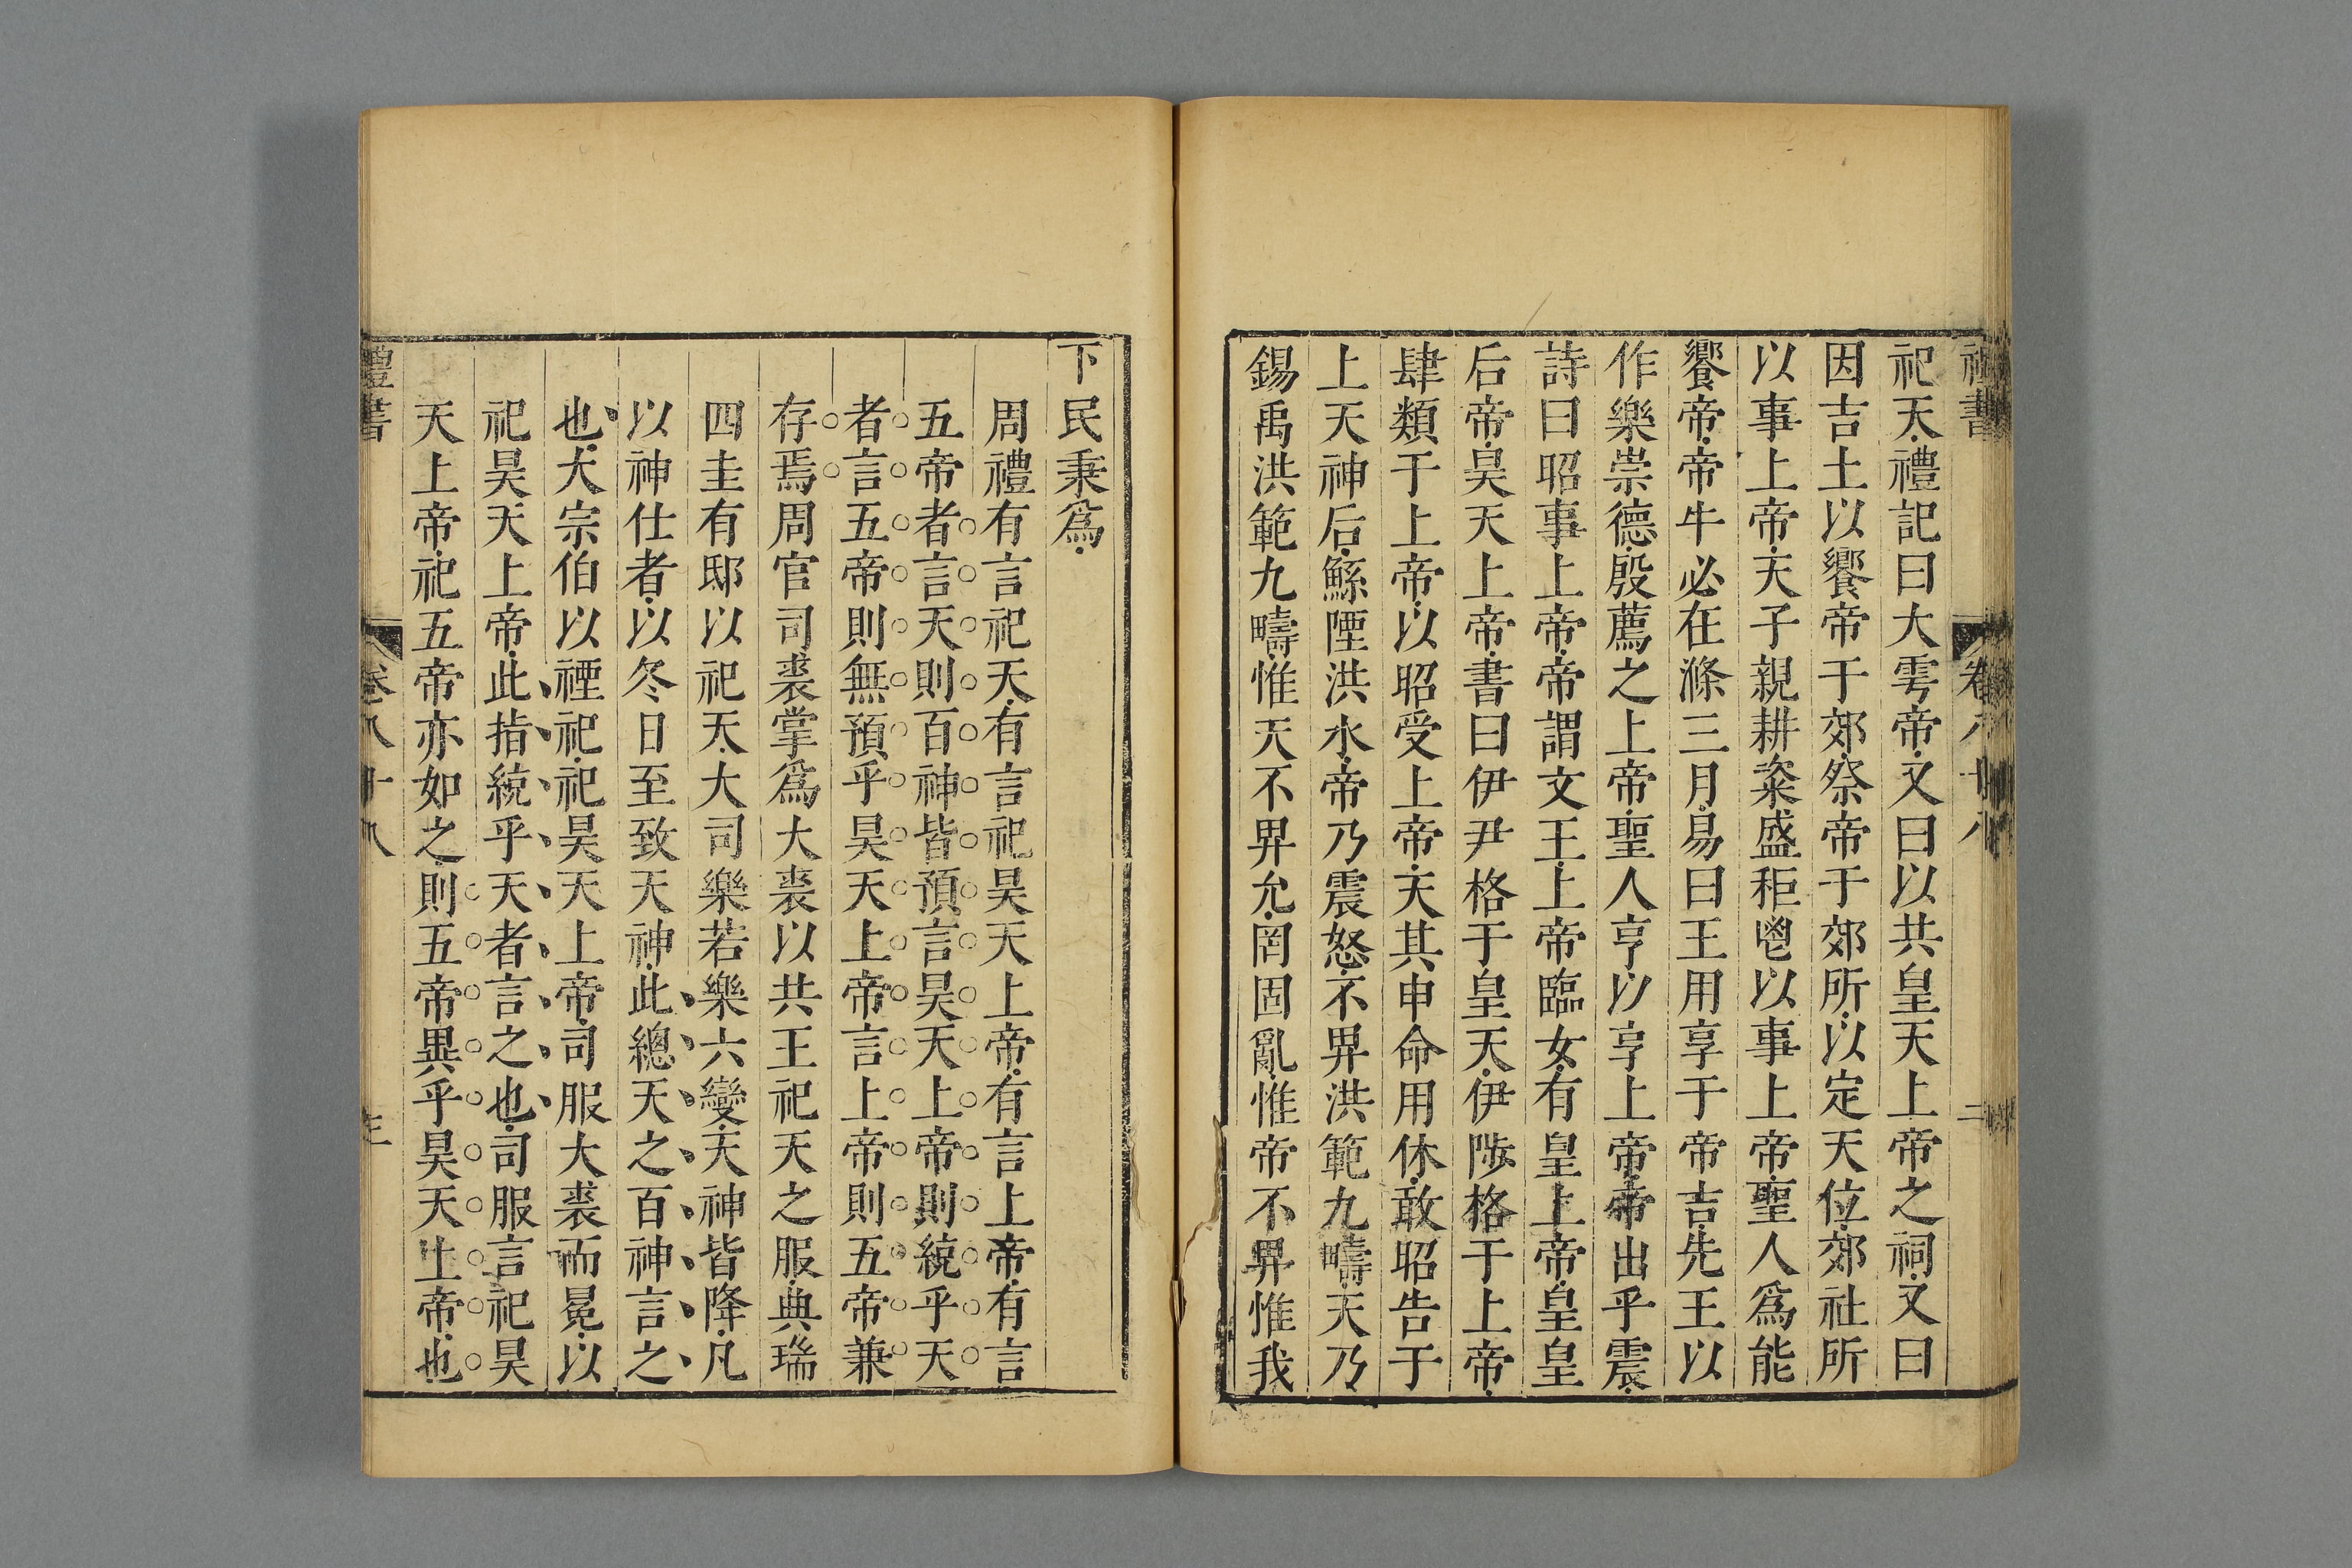 禮書
卷八十八
二
祀天禮記曰大雩帝又曰以共皇天上帝之祠又曰
因吉土以饗帝于郊祭帝于郊所以定天位郊社所
以事上帝天子親耕粢盛秬鬯以事上帝聖人爲能
饗帝帝牛必在滌三月易曰王用享于帝吉先王以
作樂崇德殷薦之上帝聖人亨以享上帝帝出乎震
詩曰昭事上帝帝謂文王上帝臨女有皇上帝皇皇
后帝昊天上帝書曰伊尹格于皇天伊陟格于上帝
肆類于上帝以昭受上帝天其申命用休敢昭告于
上天神后鯀陻洪水帝乃震怒不畀洪範九疇天乃
錫禹洪範九疇惟天不畀允罔固亂惟帝不畀惟我
下民秉爲
周禮有言祀天有言祀昊天上帝有言上帝有言
五帝者言天則百神皆預言昊天上帝則統乎天
者言五帝則無預乎昊天上帝言上帝則五帝兼
存焉周官司裘掌爲大裘以共王祀天之服典瑞
四圭有邸以祀天大司樂若樂六變天神皆降凡
以神仕者以冬日至致天神此總天之百神言之
也大宗伯以禋祀祀昊天上帝司服大裘而冕以
祀昊天上帝此指統乎天者言之也司服言祀昊
天上帝祀五帝亦如之則五帝異乎昊天上帝也
禮書
卷八十八
三